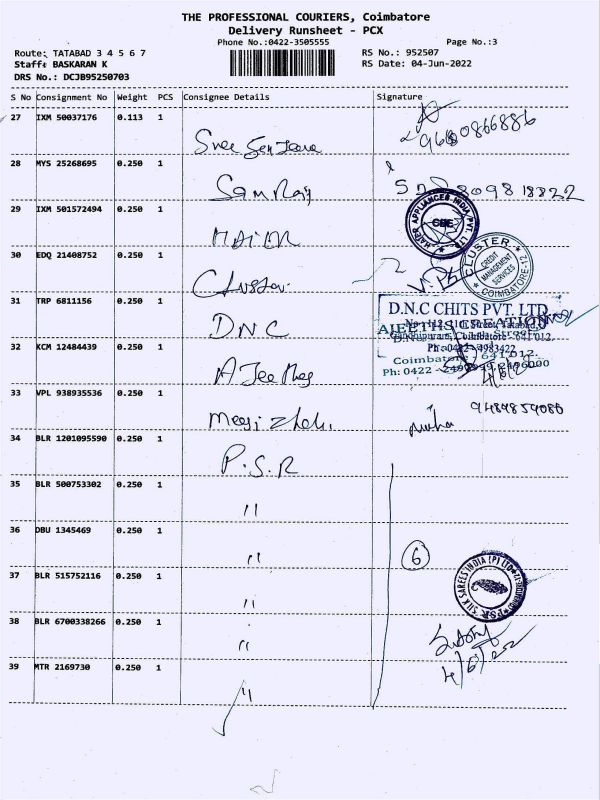 THE PROFESSIONAL COURIERS, Coimbatore
Delivery Runsheet - PCX
Phone No.:0422-3505555
Page No.:3
Route: TATABAD 3 4 5 6 7
RS No.: 952507
Staff: BASKARAN K
RS Date: 04-Jun-2022
DRS No.: DCJB95250703
S No Consignment No Weight PCS Consignee Details Signature
27 IXM 50037176 0.113 1
28 MYS 25268695 0.250 1
Sam Raj
29 IXM 501572494 0.250 1
30 EDQ 21408752 0.250 1
Cluster
CLUSTER CREDIT MANAGEMENT SERVICES COIMBATORE-12
31 TRP 6811156 0.250 1
D N C
D.N.C CHITS PVT. LTD.
32 KCM 12484439 0.250 1
Coimbatore - 641 012.
33 VPL 938935536 0.250 1
34 BLR 1201095590 0.250 1
P.S.R
35 BLR 500753302 0.250 1
"
36 DBU 1345469 0.250 1
"
6
37 BLR 515752116 0.250 1
"
PSR SILK SAREES INDIA (P) LTD
38 BLR 6700338266 0.250 1
"
39 MTR 2169730 0.250 1
"